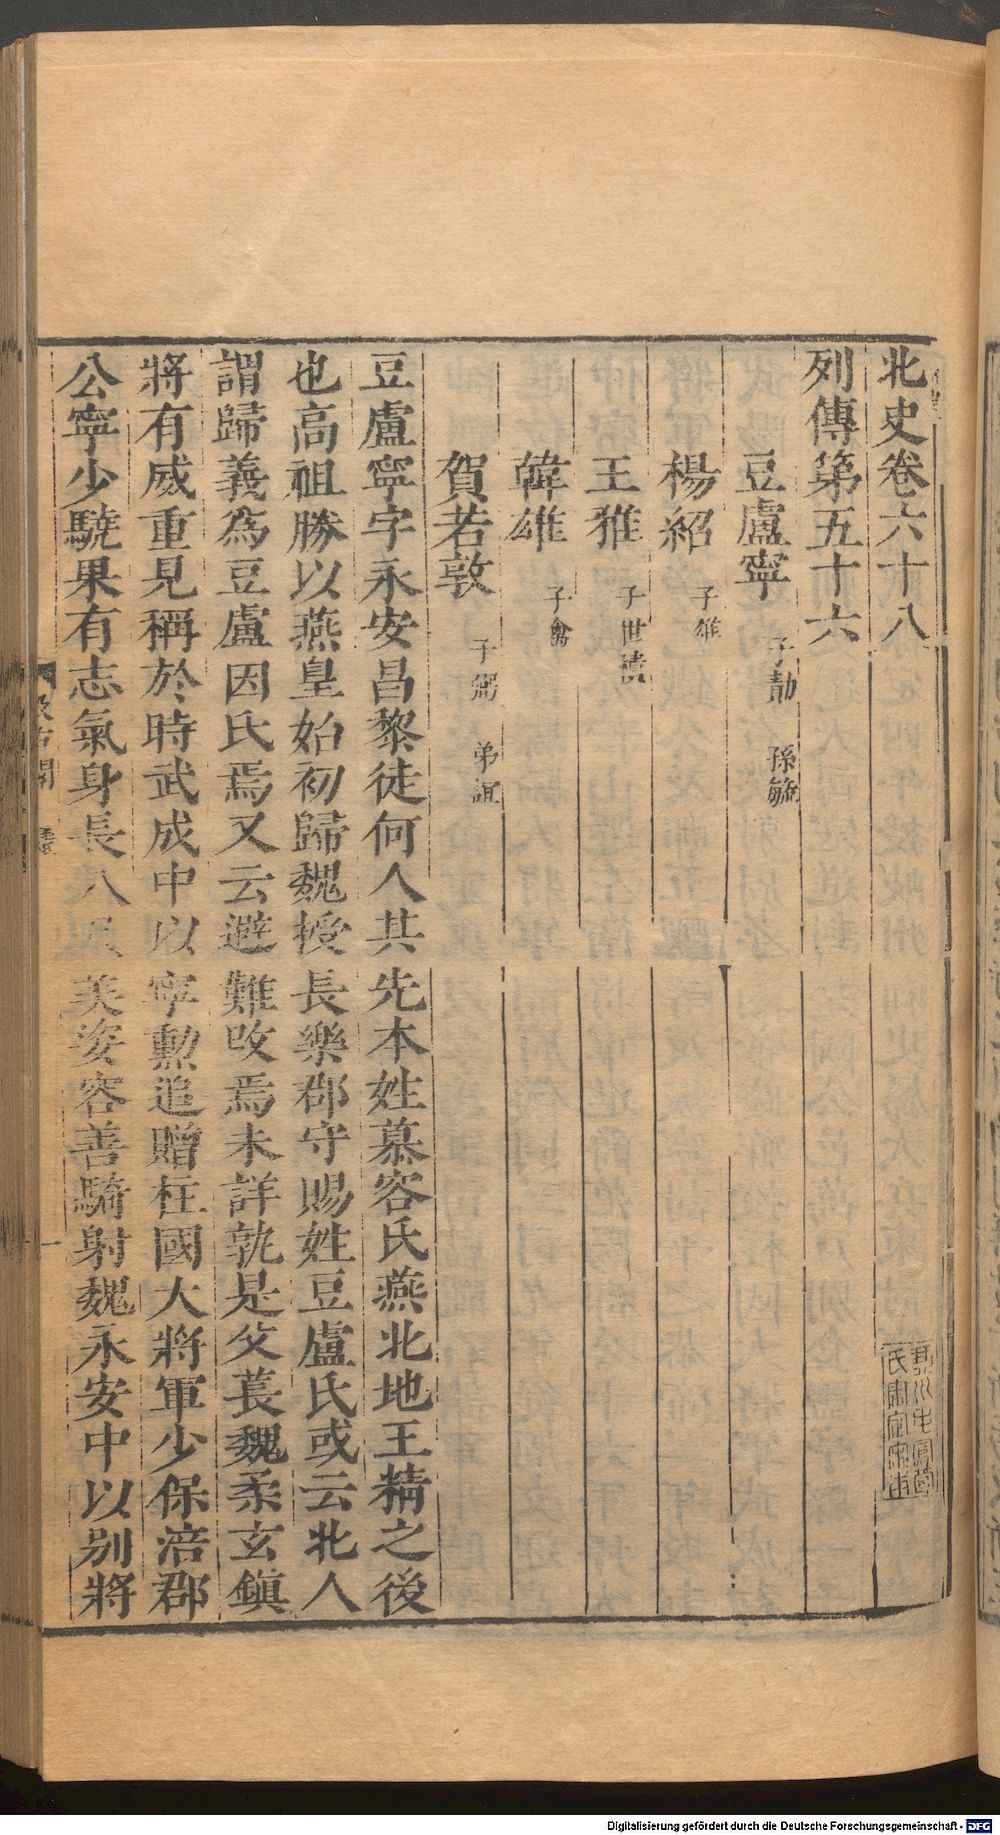 北史卷六十八
列傳第五十六
豆盧寧 子勣 孫毓
楊紹 子雄
王雅 子世積
韓雄 子禽
賀若敦 子弼 弟誼
豆盧寧字永安昌黎徒何人其先本姓慕容氏燕北地王精之後
也高祖勝以燕皇始初歸魏授長樂郡守賜姓豆盧氏或云北人
謂歸義為豆盧因氏焉又云避難改焉未詳孰是父萇魏柔玄鎮
將有威重見稱於時武成中以寧勲追贈柱國大將軍少保涪郡
公寧少驍果有志氣身長八尺美姿容善騎射魏永安中以別將
汲古閣
Digitalisierung gefördert durch die Deutsche Forschungsgemeinschaft - DFG